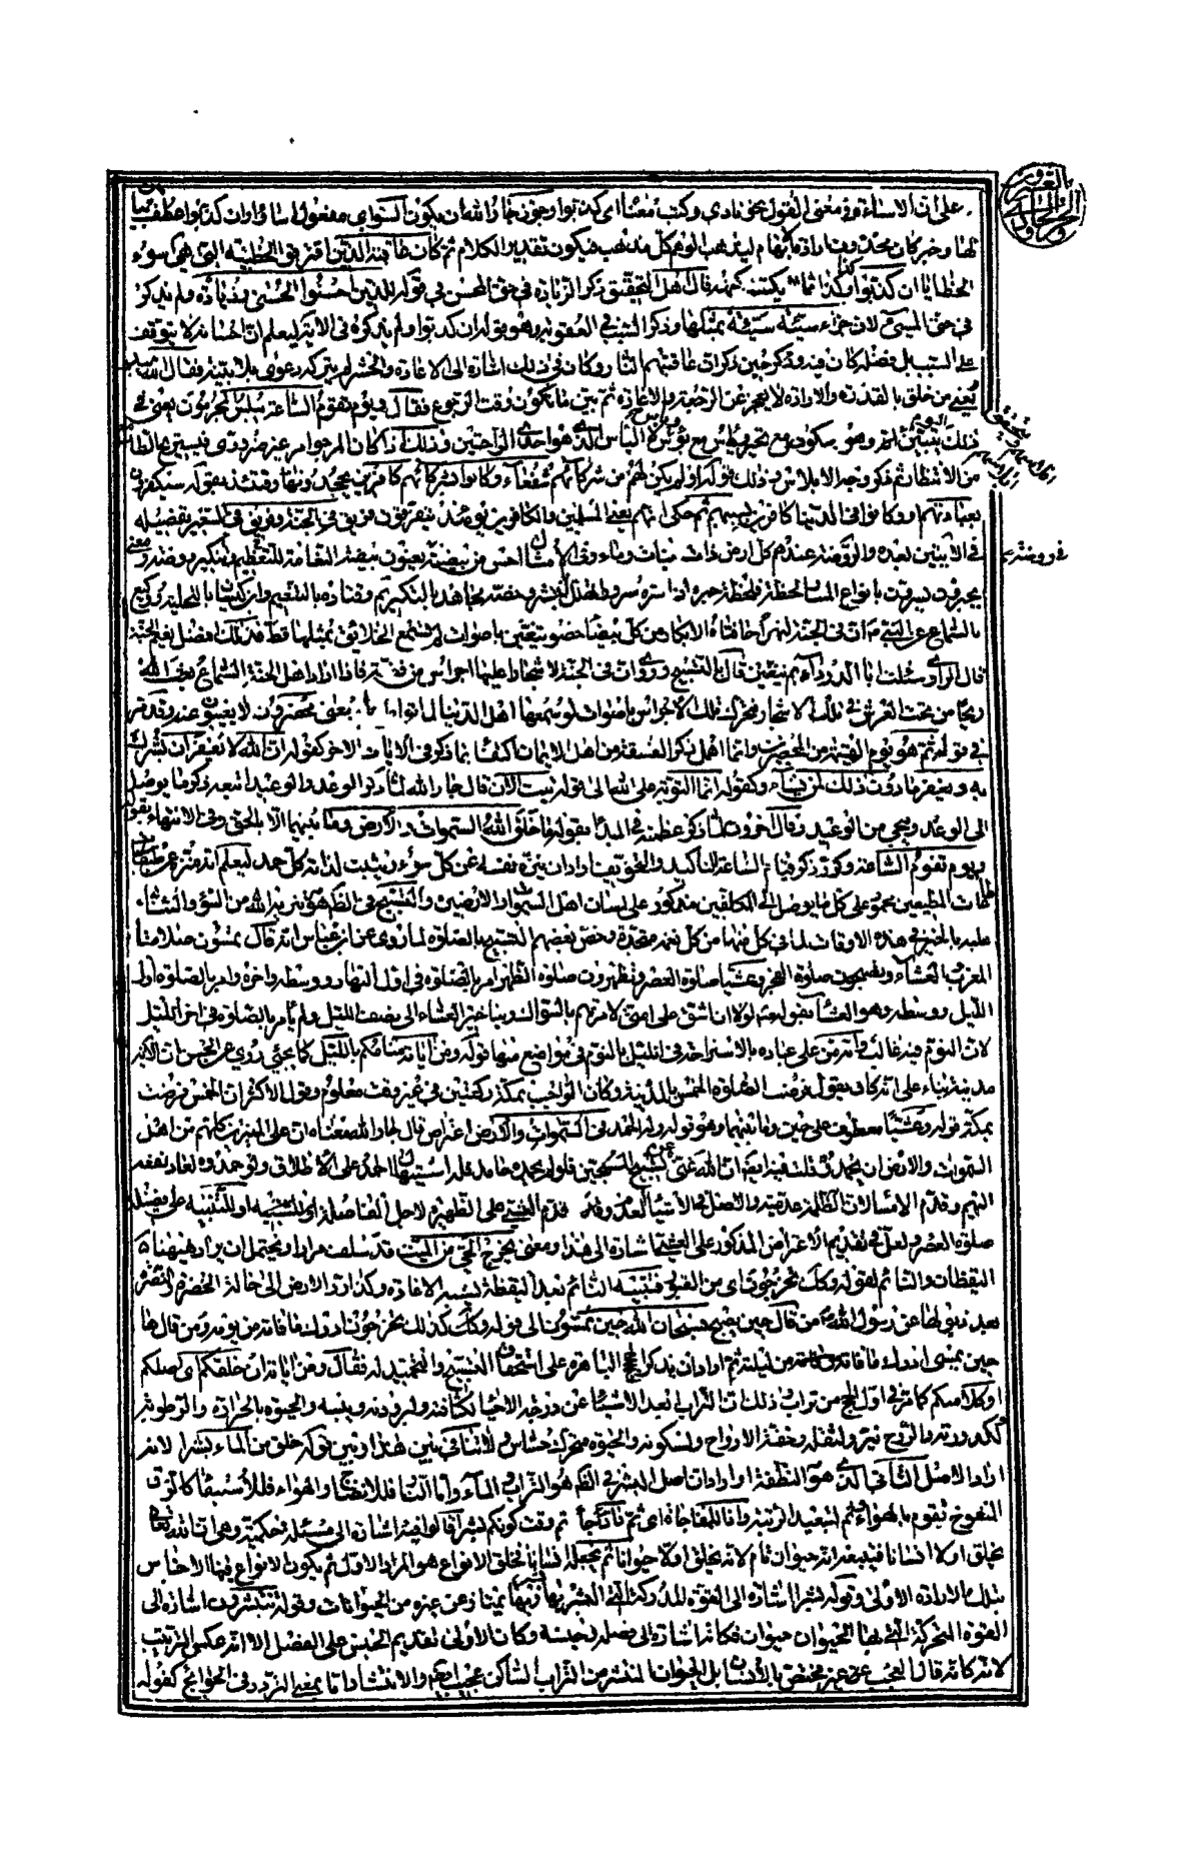 على ان الاساءة في معنى القول نحو نادى وكتب معناه اي كذبوا وجوز جار الله ان يكون السوأى مفعول اساؤا وان كذبوا عطف بيان
لها وخبر كان محذوفا ارادة الابهام ليذهب الوهم كل مذهب فيكون تقدير الكلام ثم كان عاقبة الذين اقترفوا الخطيئة التي هي سوء
الخطايا ان كذبوا وكذا يكتنه كنهه قال اهل التحقيق ذكر الزيادة في حق المحسن في قوله للذين احسنوا الحسنى وزيادة ولم يذكر
في حق المسيء لان جزاء سيئة سيئة بمثلها وذكر السبب في العقوبة وهو قوله ان كذبوا ولم يذكره في الآية ليعلم ان احسانه لا يتوقف
على السبب بل فضله كاف فيه وذكر حين ذكر ان عاقبتهم النار وكان في ذلك اشارة الى الاعادة والحشر لم يتركه دعوى بلا بينة فقال الله يبدأ
يعني من خلق بالقدرة والارادة لا يعجز عن الرجعة والاعادة ثم بين ما يكون وقت الرجوع فقال ويوم تقوم الساعة يبلس المجرمون يعني في
ذلك اليوم يتبين افلاسهم وهو سكون مع تحير واليأس هو احدى الراحتين وذلك اذا كان المرجو امر غير ضروري فيستريح الطالب
من الانتظار ثم ذكر وجه الابلاس وذلك قوله ولم يكن لهم من شركائهم شفعاء وكانوا بشركائهم كافرين يجحدونها وقتئذ بقوله سيكفرون
بعبادتهم او وكانوا في الدنيا كافرين بسببهم ثم حكى انهم يعني المسلمين والكافرين يومئذ يتفرقون فريق في الجنة وفريق في السعير تفصيله
في الآيتين بعده والروضة عندهم كل ارض ذات نبات وماء وفي الامثال احسن من بيضة في روضة يعنون بيضة النعامة والتنكير في روضة للتعظيم ومعنى
يحبرون يسرون بانواع المسار لحظة فلحظة حبره اذا سره سرورا تهلل له وجهه وفسره مجاهد بالتكريم وقتادة بالتنعيم وابن كيسان بالتحلية ووكيع
بالسماع عن النبي ان في الجنة لنهرا حافتاه الابكار من كل بيضاء خوصانية يتغنين باصوات لم تسمع الخلائق بمثلها قط فذلك افضل نعيم الجنة
قال الراوي سألت ابا الدرداء بم يتغنين قال بالتسبيح وروي ان في الجنة لاشجارا عليها اجراس من فضة فاذا اراد اهل الجنة السماع بعث الله
ريحا من تحت العرش فتقع في تلك الاشجار فتحرك تلك الاجراس باصوات لو سمعها اهل الدنيا لماتوا طربا ومعنى محضرون لا يغيبون عنه وقد مر
في قوله ثم هو يوم القيمة من المحضرين وانما اهمل ذكر الفسقة من اهل الايمان اكتفاء بما ذكر في الآيات الاخر كقوله ان الله لا يغفر ان يشرك
به ويغفر ما دون ذلك لمن يشاء وكقوله انما التوبة على الله الى قوله تبت الآن قال جار الله لما ذكر الوعد والوعيد اتبعه ذكر ما يوصل
الى الوعد وينجي من الوعيد وقال آخرون لما ذكر عظمته في المبدأ بقوله ما خلق الله السموات والارض وما بينهما الا بالحق وفي الانتهاء بقوله
ويوم تقوم الساعة وكرر ذكر قيام الساعة للتأكيد والتخويف اراد ان ينزه نفسه عن كل سوء ويثبت لذاته كل حمد ليعلم انه منزه عن
طاعات المطيعين محمود على كل ما يوصل الى المكلفين مذكور على لسان اهل السموات والارضين والتسبيح في الظاهر هو تنزيه الله من السوء والثناء
عليه بالخير في هذه الاوقات لما في كل منها من كل نعم متجددة وخص بعضهم التسبيح بالصلوة لما روي عن ابن عباس انه قال تمسون صلاتا
المغرب والعشاء وتصبحون صلوة الفجر وعشيا صلوة العصر وتظهرون صلوة الظهر امر بالصلوة في اول النهار ووسطه وآخره وامر بالصلوة اول
الليل ووسطه وهو العشاء بقوله لولا ان اشق على امتي لامرتهم بالسواك وبتأخير العشاء الى نصف الليل ولم يأمر بالصلوة في آخر الليل
لان النوم فيه غالب وانه من على عباده بالاستراحة في الليل بالنوم في مواضع منها قوله ومن آياته منامكم بالليل كما يجئ وروي عن الحسن ان الآية
مدنية بناء على انه كان يقول فرضت الصلوة الخمس بالمدينة وكان الواجب بمكة ركعتين في غير وقت معلوم وقول الاكثر ان الخمس فرضت
بمكة قوله وعشيا معطوف على حين وما بينهما وهو قوله وله الحمد في السموات والارض اعتراض قال جار الله معناه ان على المميزين كلهم من اهل
السموات والارض ان يحمدوه قلت فيه ايضا ان الله غني عن تسبيح المسبحين
اليهم وقدم الامساء لان الظلمة عدمية والاصل في الاشياء العدم وقدم العشي على الظهيرة لاجل الفاصلة او للتنبيه على فضيلة
صلوة العصر ولعل في تقديم الاعتراض المذكور على العشي اشارة الى هذا ومعنى يخرج الحي من الميت قد سلف مرارا ويحتمل ان يراد هيهنا
اليقظان والنائم لقوله وكذلك تخرجون اي من القبور فتنبيه النائم بعد اليقظة يشبه الاعادة وكذا رد الارض الى حالة الخضرة والنضرة
بعد ذبولها عن رسول الله من قال حين يصبح فسبحان الله حين تمسون الى قوله وكذلك تخرجون ادرك ما فاته من يومه ومن قالها
حين يمسي ادرك ما فاته من ليلته ثم اراد ان يذكر الحجج الباهرة على استحقاق التسبيح والتحميد له فقال ومن آياته ان خلقكم اي اصلكم
او كلا منكم كما مر في اول الحج من تراب وذلك ان التراب ابعد الاشياء عن درجة الاحياء لكثافته ولبرودته ويبسه والحيوة بالحرارة والرطوبة
لكدورته والروح نير ولثقله وخفة الارواح ولسكونه والحيوة متحرك حساس ولا تنافي بين هذا وبين قوله خلق من الماء بشرا لانه
اراد الاصل الثاني الذي هو النطفة او اراد ان اصل البشر في الظاهر هو التراب والماء واما النار فللانضاج والهواء فللاستبقاء كالزق
المنفوخ يقوم بالهواء وثم لتبعيد الرتبة واذا للمفاجأة اي ثم فاجأتم وقت كونكم بشرا قالوا فيه اشارة الى مسئلة حكمية وهي ان الله تعالى
يخلق اولا انسانا فيتبعه انه حيوان نام لا انه يخلق اولا حيوانا ثم يجعله انسانا فخلق الانواع هو المراد الاول ثم يكون الانواع فيها الاجناس
بتلك الارادة الاولى وقوله بشرا اشارة الى القوة المدركة التي البشر بها يمتاز عن غيره من الحيوانات وقوله تنتشرون اشارة الى
القوة المتحركة التي بها الحيوان حيوان فكانه اشارة الى فصله وجنسه وكان الاولى تقديم الجنس على الفصل الا انه عكس الترتيب
لانه كانه قال العجب غير مختص بالانسان بل الحيوان المنتشر من التراب الساكن عجيب ايضا والانتشار اما بمعنى التردد في الحوائج كقوله